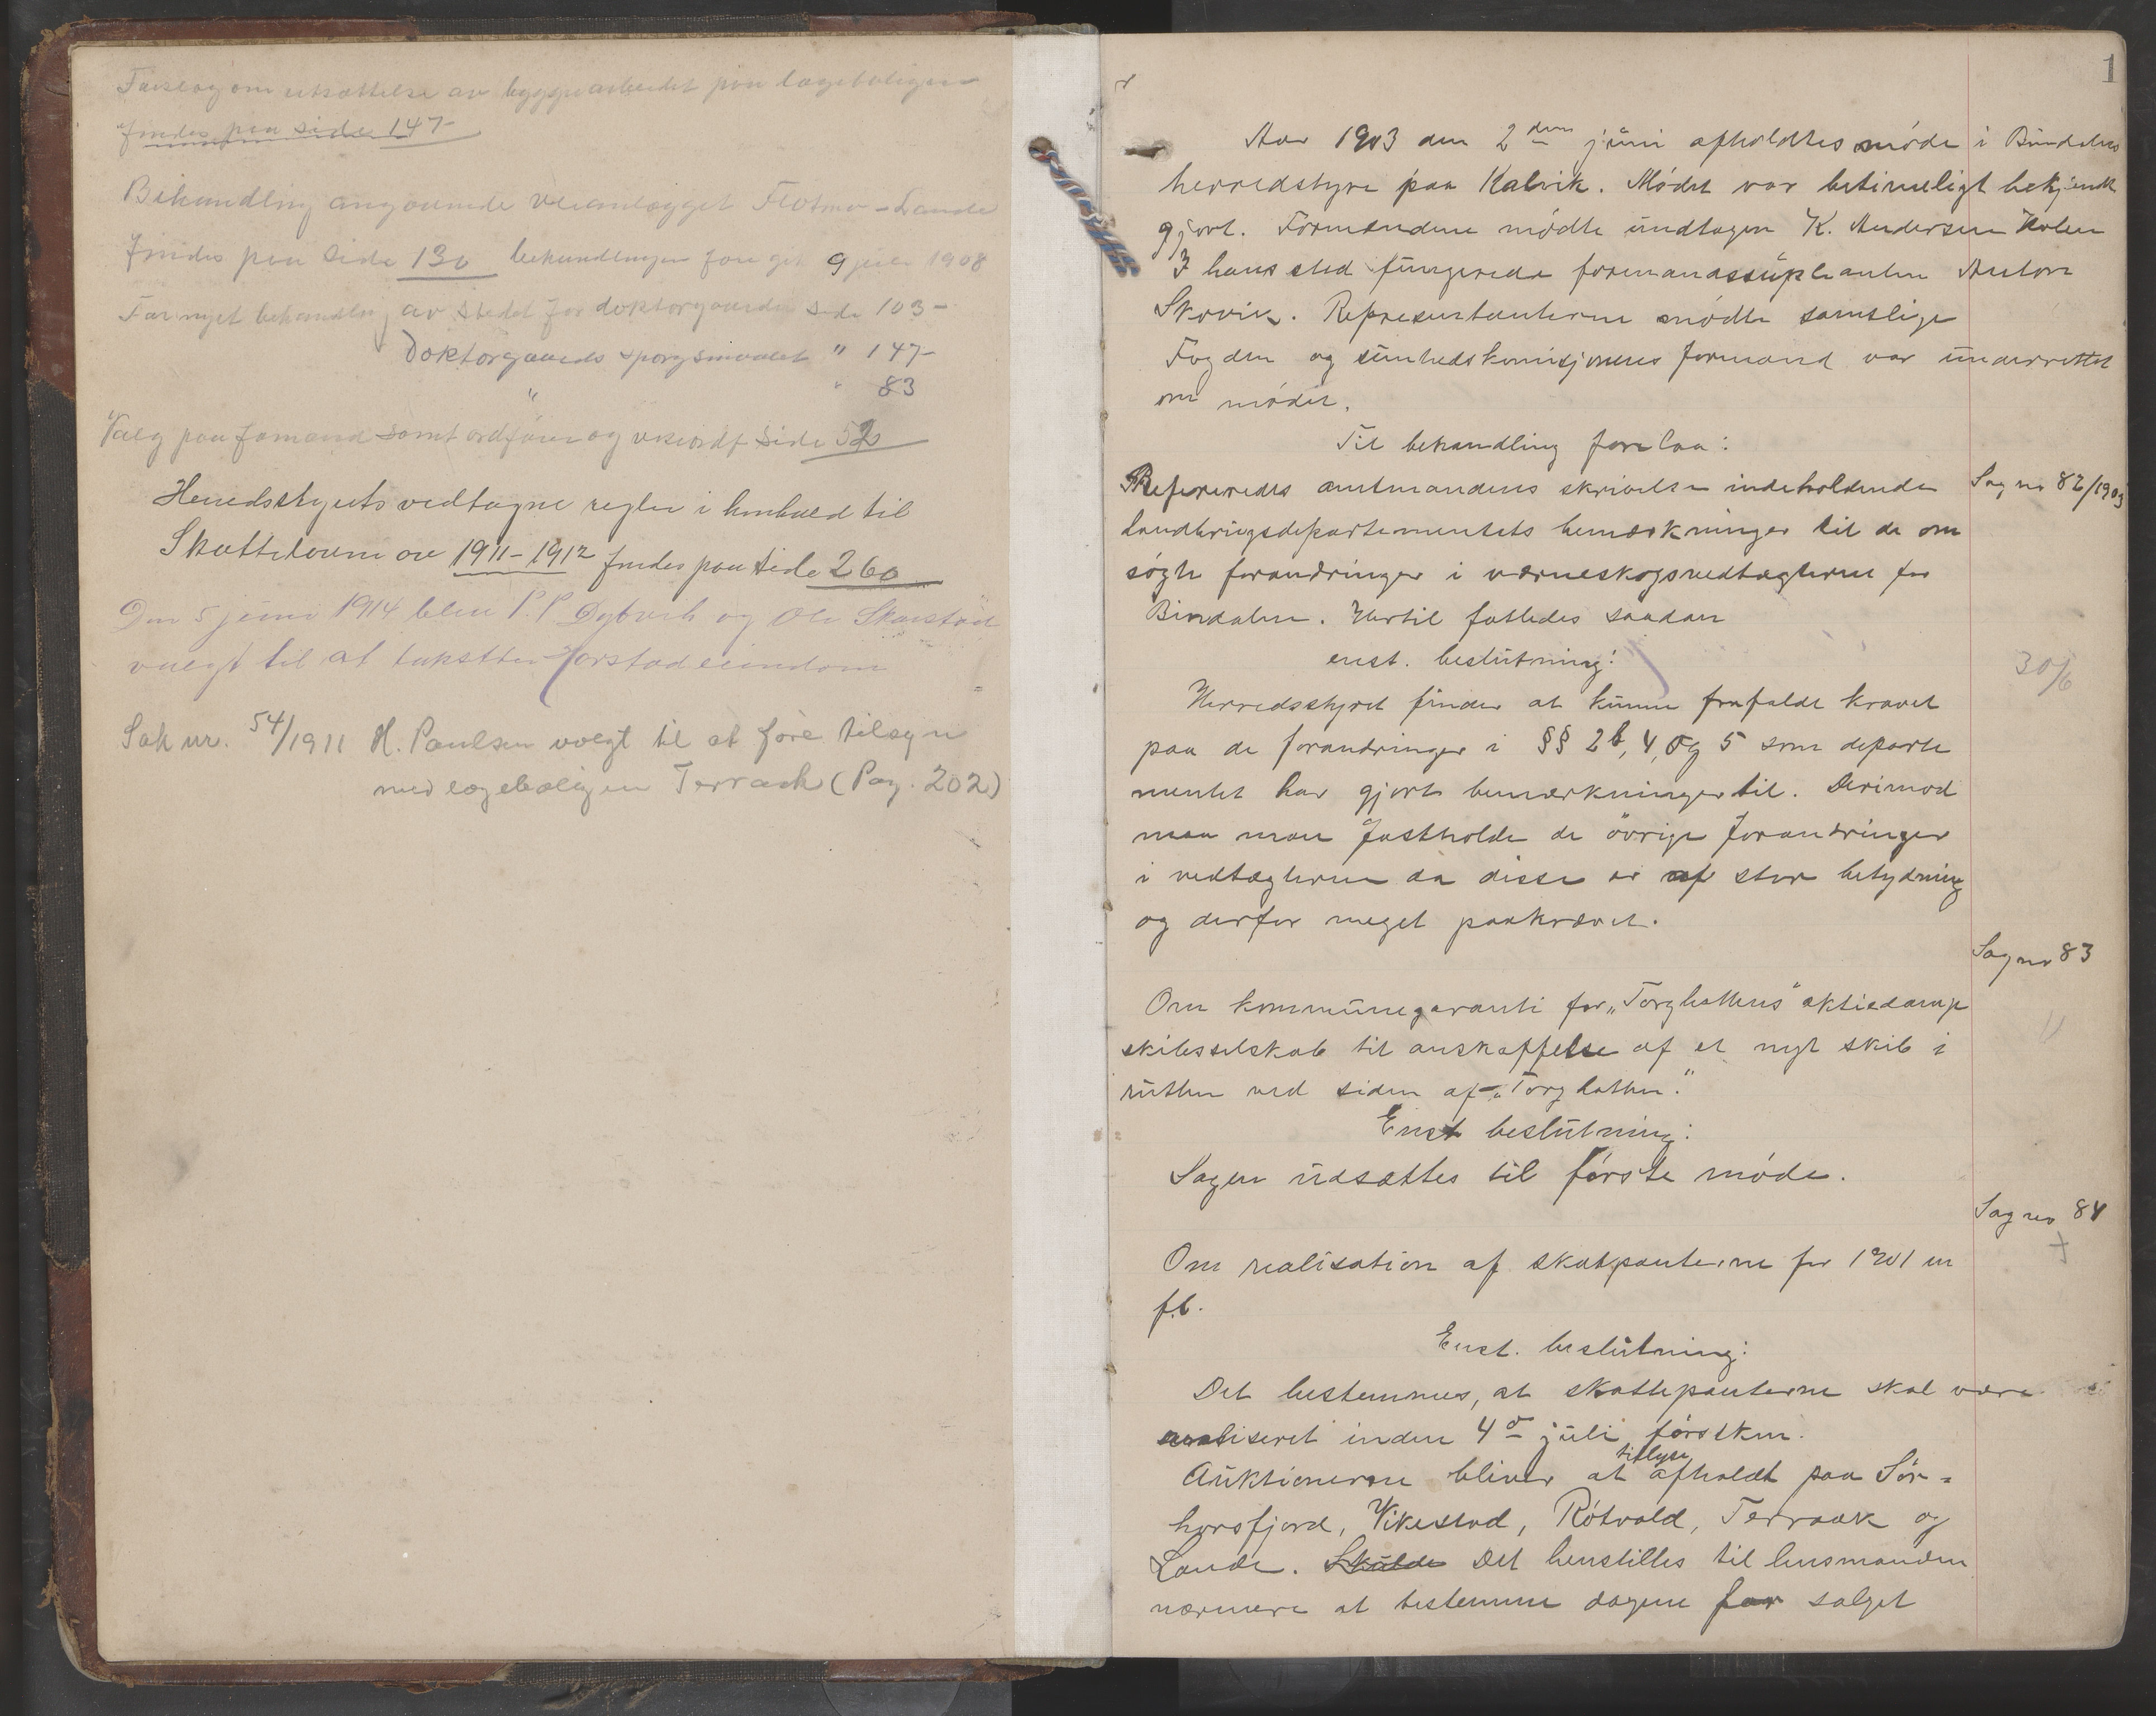 Forslag om utsættelse av byggearbeidet paa lægeboligen
findes paa side 147
Behandling angaaende veianlægget Flotmo - Lande
findes paa side 130 behandlingen foregik 9 juli 1908
Fornyet behandling av stedet for doktorgaarden side 103-
Doktorgaards spørgsmaalet " 147-
" " 83
Valg paa formand samt ordfører og viseordf side 52
Herredsstyrets vedtagne regler i henhold til
Skatteloven av 1911-1912 findes paa side 260
Den 5 juni 1914 blev P. P. Dybvik og Ole Skarstad
valgt til at takstere Horstad eiendom
Sak nr. 54/1911 H. Paulsen valgt til at føre tilsyn
med lægeboligen Terraak (Pag. 202)
1
Aar 1903 den 2den juni afholdtes møde i Bindalens
herredstyre paa Kalvik. Mødet var betimeligt bekjendt
gjort. Formændene mødte undtagen K. Andersen Holm
I hans sted fungerede formandssupleanten Anton
Skovik. Representanterne mødte samtlige
Fogden og sundhedskomisjonens formand var underrettet
om mødet.
Til behandling forelaa:
Refereredes amtmandens skrivelse indeholdende
Sag no 82/1903
Landbrugsdepartementets bemærkninger til de om
søgte forandringer i værneskogsvedtægterne for
Bindalen. Hertil fattedes saadan
enst. beslutning:
30/6
Herredsstyret finder at kunne frafalde kravet
paa de forandringer i §§ 2b, 4, og 5 som departe
mentet har gjort bemærkninger til. Derimod
maa man fastholde de øvrige forandringer
i vedtægterne da disse er af stor betydning
og derfor meget paakrævet.
Sag no 83
Om kommunegaranti for "Torghattens" aktiedamp
skibsselskab til anskaffelse af et nyt skib i
ruten ved siden af "Torghatten."
Enst beslutning:
Sagen udsættes til første møde.
Sag no 84
Om realisation af skatpanterne for 1901 m
fl.
Enst. beslutning:
Det bestemmes, at skattepanterne skal være
realiseret inden 4de juli førstkm.
tillyse
Auktionerne bliver at afholdt paa Sør-
horsfjord, Vikestad, Røtvold, Terraak og
Lande. Skulde Det henstilles til lensmanden
nærmere at bestemme dagene for salget